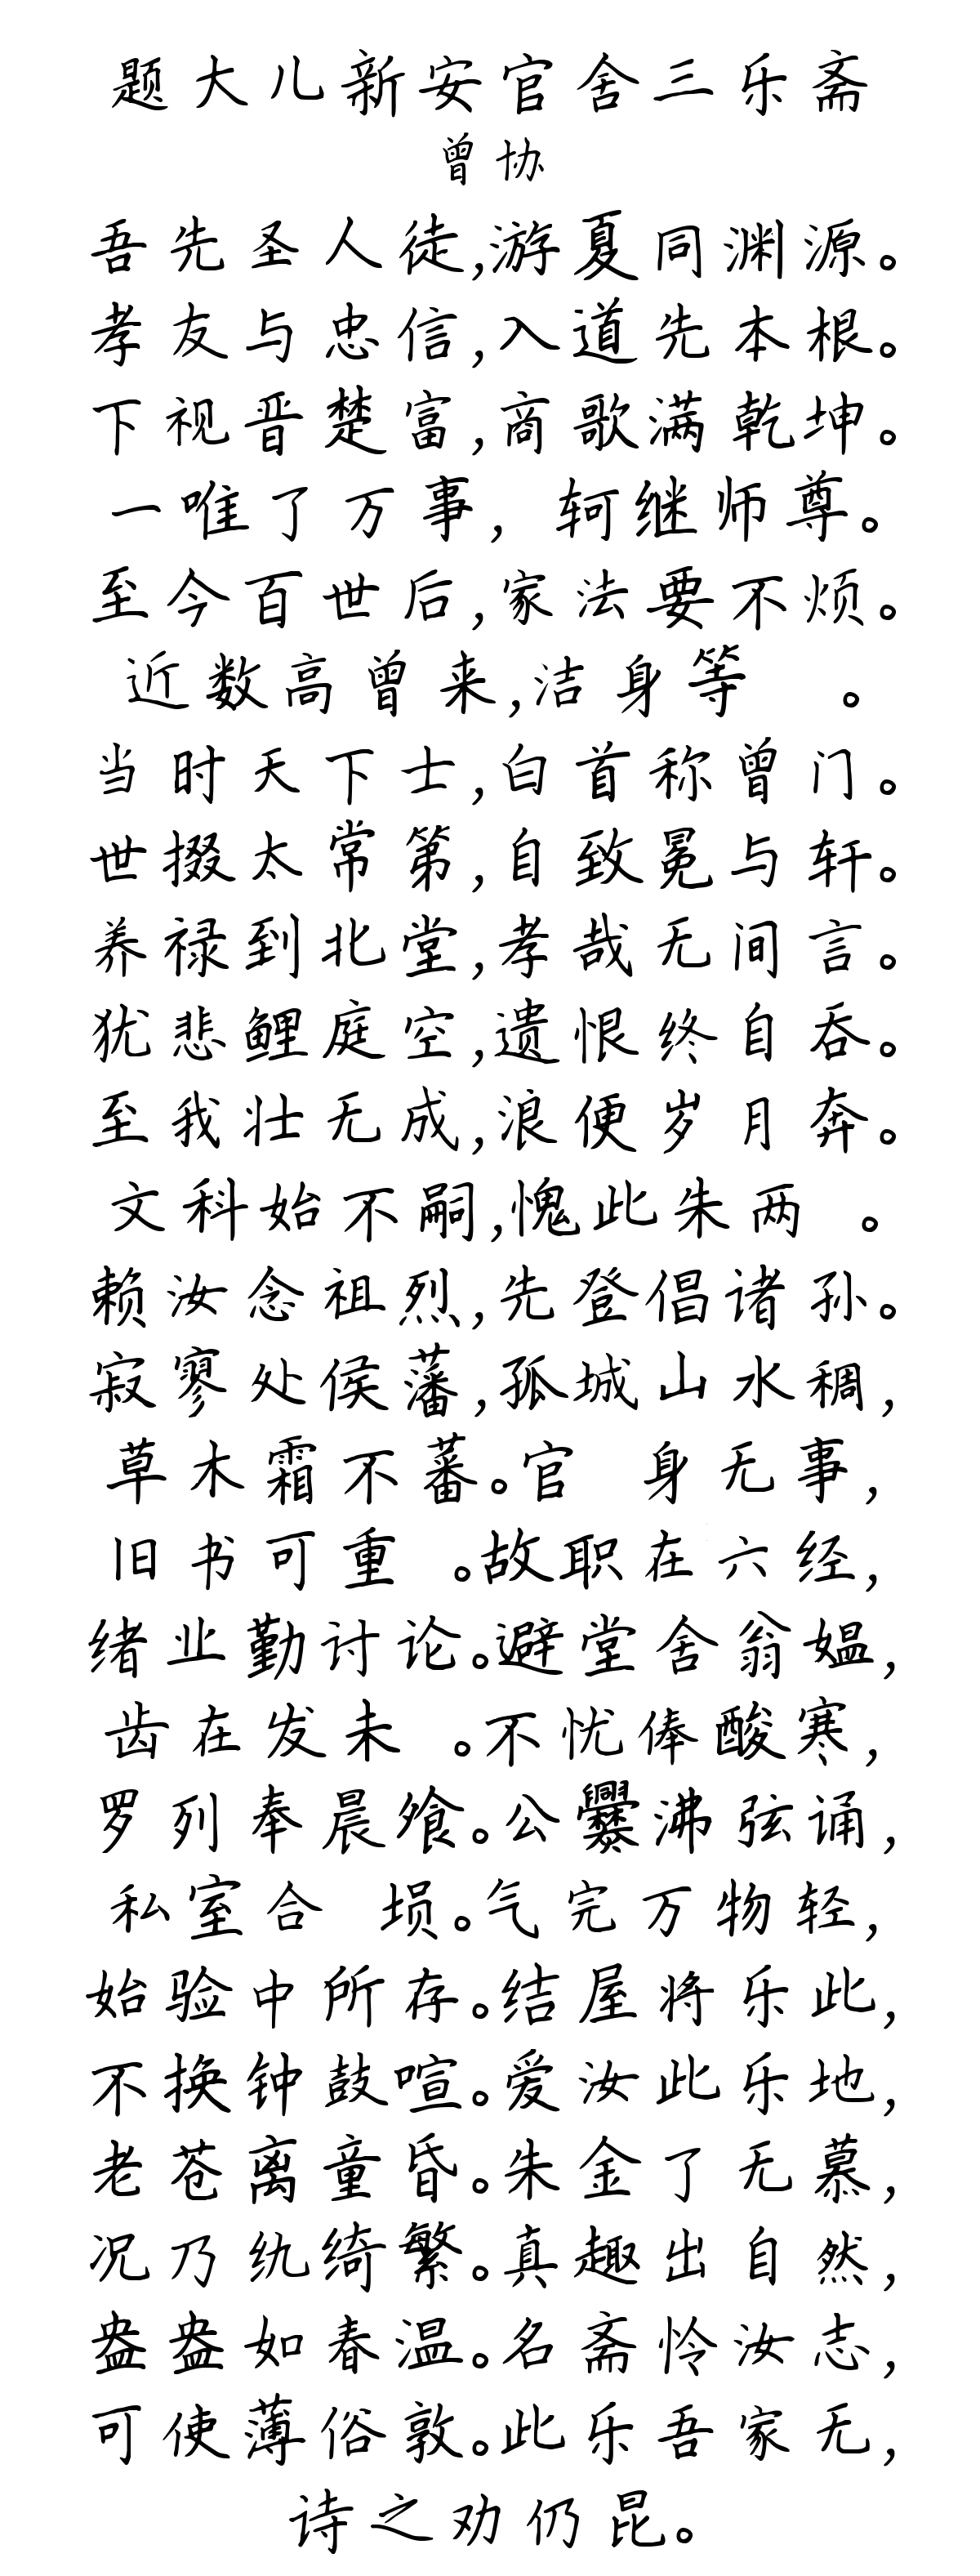 题大儿新安官舍三乐斋
曾协
吾先圣人徒,游夏同渊源。
孝友与忠信,入道先本根。
下视晋楚富,商歌满乾坤。
一唯了万事,轲继师尊。
至今百世后,家法要不烦。
近数高曾来,洁身等 。
当时天下士,白首称曾门。
世掇太常第,自致冕与轩。
养禄到北堂,孝哉无间言。
犹悲鲤庭空,遗恨终自吞。
至我壮无成,浪便岁月奔。
文科始不嗣,愧此朱两 。
赖汝念祖烈,先登倡诸孙。
寂寥处侯藩,孤城山水稠,
草木霜不蕃。官 身无事,
旧书可重 。故职在六经,
绪业勤讨论。避堂舍翁媪,
齿在发未 。不忧俸酸寒,
罗列奉晨飧。公爨沸弦诵,
私室合 埙。气完万物轻,
始验中所存。结屋将乐此,
不换钟鼓喧。爱汝此乐地,
老苍离童昏。朱金了无慕,
况乃纨绮繁。真趣出自然,
盎盎如春温。名斋怜汝志,
可使薄俗敦。此乐吾家无,
诗之劝仍昆。